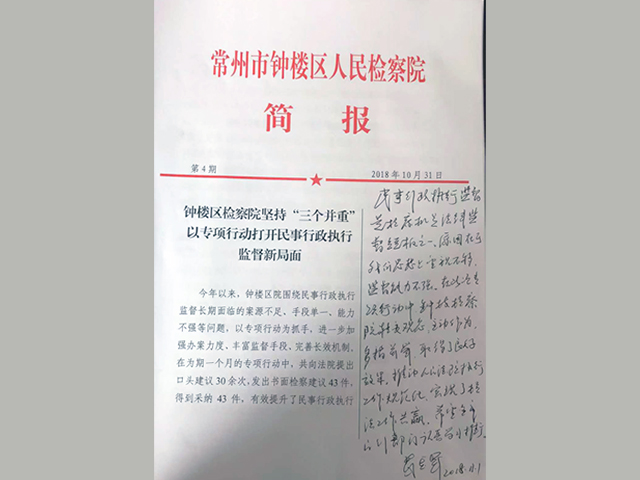 常州市钟楼区人民检察院
简 报
第 4 期
2018 年 10 月 31 日
钟楼区检察院坚持“三个并重”
以专项行动打开民事行政执行
监督新局面
今年以来，钟楼区院围绕民事行政执行
监督长期面临的案源不足、手段单一、能力
不强等问题，以专项行动为抓手，进一步加
强办案力度、丰富监督手段、完善长效机制，
在为期一个月的专项行动中，共向法院提出
口头建议 30 余次，发出书面检察建议 43 件，
得到采纳 43 件，有效提升了民事行政执行
民事行政执行监督
是检察机关法律监
督短板之一，原因在于
我们思想上重视不够，
监督能力不强。在
专项行动中
院转变观念，主动作为，
多措并举，取得了
效果，推动人民法院执行
工作规范化，实现了检
法工作共赢。
2018.11.1